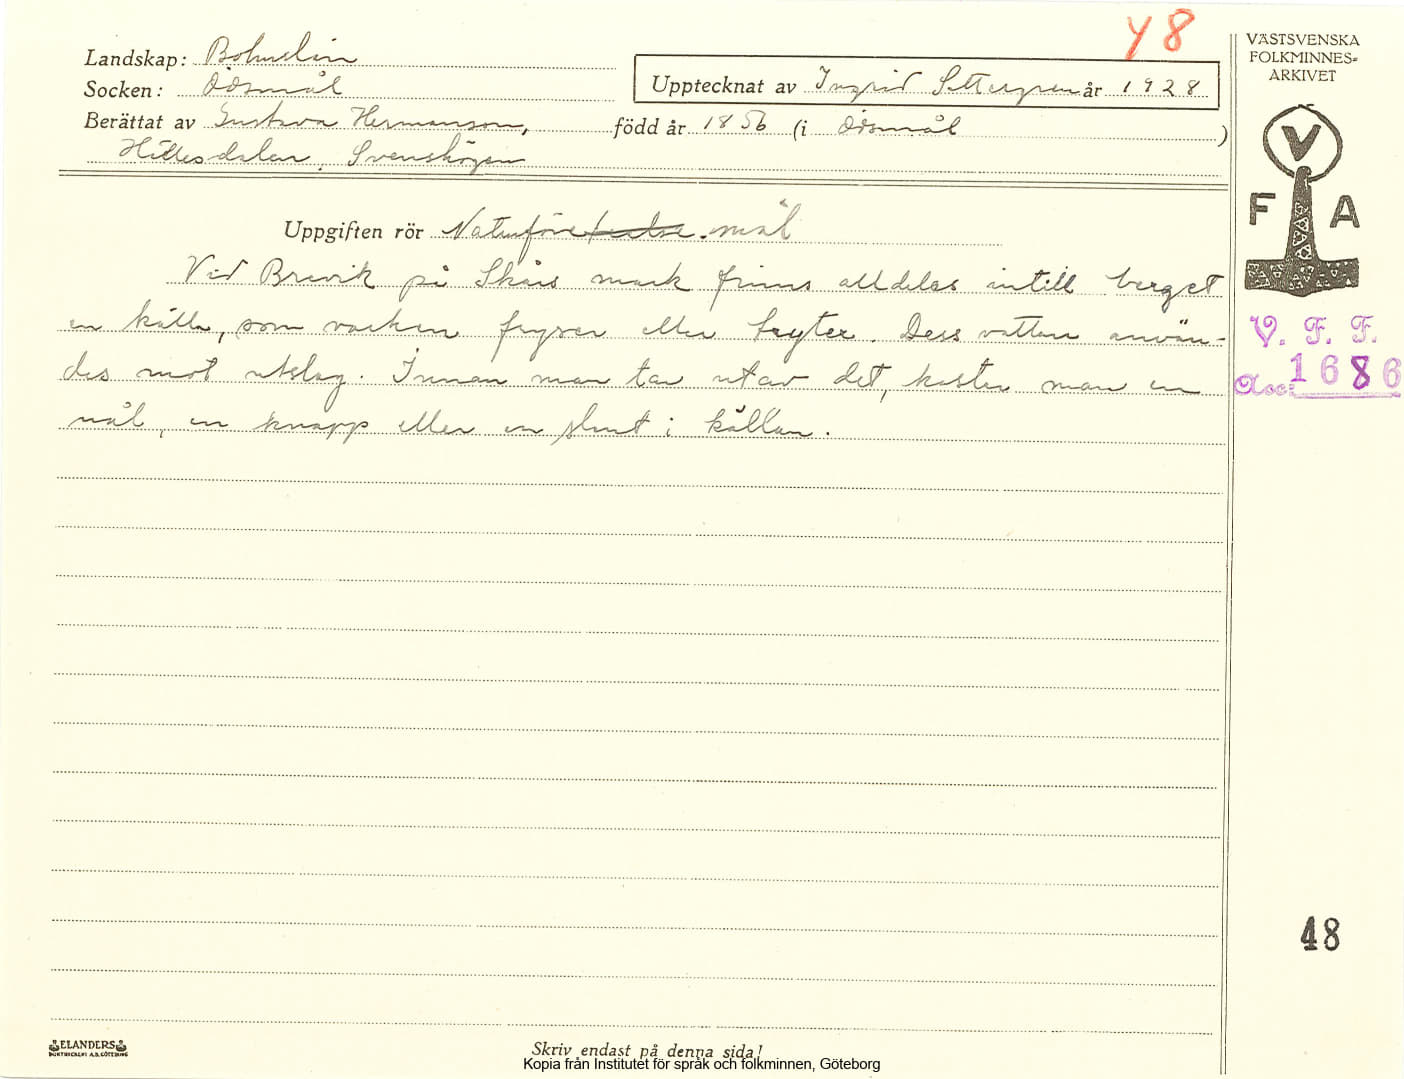 48
Landskap: Bohuslän
Socken: Ödsmål
Upptecknat av Ingrid Settergren år 1928
Berättat av Gustava Hermanson, född år 1856 (i Ödsmål)
Hillesdalen, Svenshögen
Uppgiften rör Naturföre mål
Vid Brevik på Skårs mark finns alldeles intill berget
en källa, som varken fryser eller tryter. Dess vatten använ-
des mot utslag. Innan man tar utav det, kastar man en
nål, en knapp eller en slant i källan.
VÄSTSVENSKA
FOLKMINNES=
ARKIVET
V
F A
V. F. F.
Acc: 1686
48
ELANDERS
BOKTRYCKERI A.B. GÖTEBORG
Skriv endast på denna sida!
Kopia från Institutet för språk och folkminnen, Göteborg